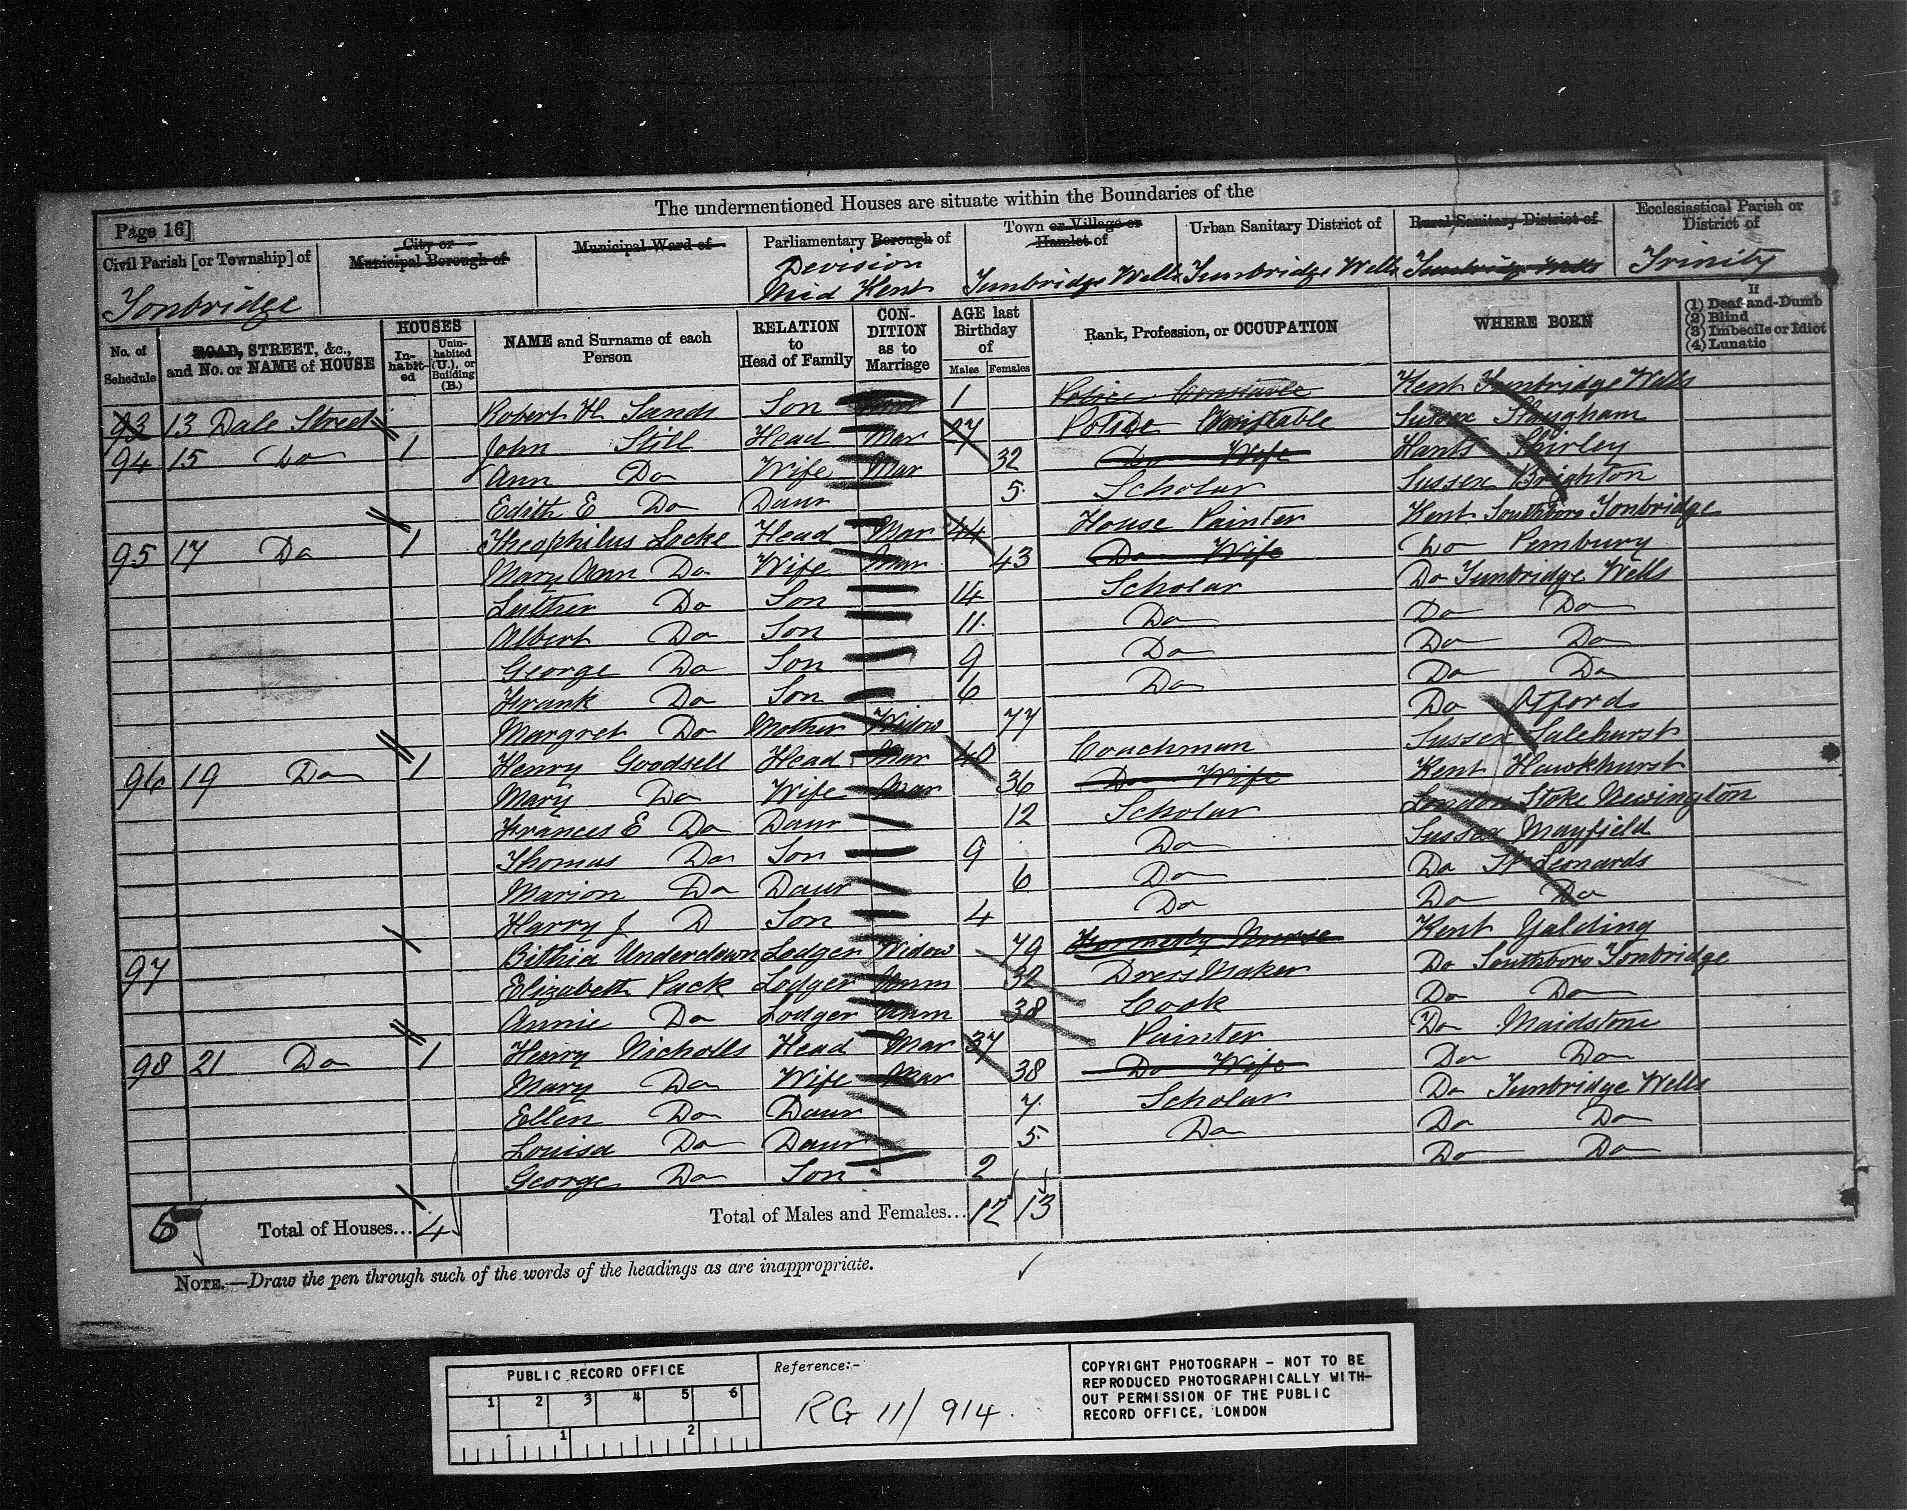 The undermentioned Houses are situate within the Boundaries of the
Page 16]
Civil Parish [or Township] of
Tonbridge
City or Municipal Borough of
Municipal Ward of
Parliamentary Borough of
Devision
Mid Kent
Town or Village or Hamlet of
Tunbridge Wells
Urban Sanitary District of
Tunbridge Wells
Rural Sanitary District of
Tunbridge Wells
Ecclesiastical Parish or District of
Trinity
No. of Schedule
ROAD, STREET, &c., and No. or NAME of HOUSE
HOUSES
In-habit-ed
Unin-habited (U.), or Building (B.)
NAME and Surname of each Person
RELATION to Head of Family
CON-DITION as to Marriage
AGE last Birthday of
Males
Females
Rank, Profession, or OCCUPATION
WHERE BORN
If
(1) Deaf-and-Dumb
(2) Blind
(3) Imbecile or Idiot
(4) Lunatic
93 13 Dale Street Robert H. Sands Son 1 Police Constable Kent Tunbridge Wells
94 15 Do 1 John Still Head Mar 27 Police Constable Sussex Slaugham
Ann Do Wife Mar 32 Do Wife Hants Shirley
Edith E Do Daur 5 Scholar Sussex Brighton
95 17 Do 1 Theophilus Locke Head Mar 44 House Painter Kent Southboro Tonbridge
Mary Ann Do Wife Mar 43 Do Wife Do Pembury
Luther Do Son 14 Scholar Do Tunbridge Wells
Albert Do Son 11 Do Do Do
George Do Son 9 Do Do Do
Frank Do Son 6 Do Do Do
Margret Do Mother Widow 77 Do Otford
96 19 Do 1 Henry Goodsell Head Mar 40 Coachman Sussex Salehurst
Mary Do Wife Mar 36 Do Wife Kent Hawkhurst
Frances E Do Daur 12 Scholar London Stoke Newington
Thomas Do Son 9 Do Sussex Mayfield
Marion Do Daur 6 Do Do St Leonards
Harry J D Son 4 Do Do Do
97 Bithia Underdown Lodger Widow 79 Formerly Nurse Kent Yalding
Elizabeth Pack Lodger Unm 32 Dress Maker Do Southboro Tonbridge
Annie Do Lodger Unm 38 Cook Do Do
98 21 Do 1 Henry Nicholls Head Mar 37 Painter Do Maidstone
Mary Do Wife Mar 38 Do Wife Do Do
Ellen Do Daur 7 Scholar Do Tunbridge Wells
Louisa Do Daur 5 Do Do Do
George Do Son 2 Do Do
5 Total of Houses... 4 Total of Males and Females... 12 13
NOTE.—Draw the pen through such of the words of the headings as are inappropriate.
PUBLIC RECORD OFFICE
1 2 3 4 5 6
1 2
Reference:-
RG 11/914.
COPYRIGHT PHOTOGRAPH - NOT TO BE
REPRODUCED PHOTOGRAPHICALLY WITH-
OUT PERMISSION OF THE PUBLIC
RECORD OFFICE, LONDON